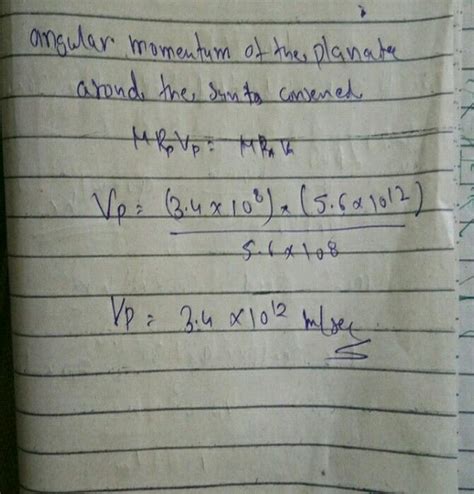 angular momentum of the planate
around the sun to conserved
M Rp Vp = M RA VA
Vp = (3.4 x 10^8) x (5.6 x 10^12)
5.6 x 10^8
Vp = 3.4 x 10^12 m/sec